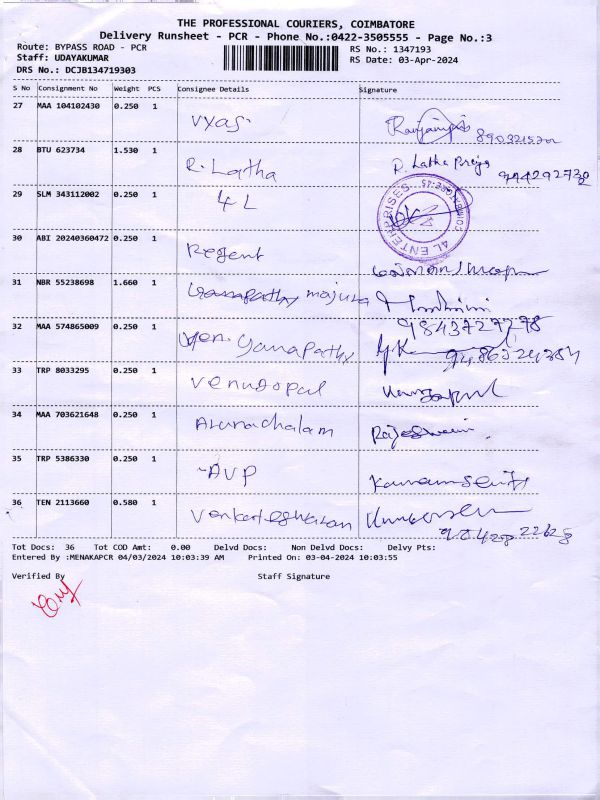 THE PROFESSIONAL COURIERS, COIMBATORE
Delivery Runsheet - PCR - Phone No.:0422-3505555 - Page No.:3
Route: BYPASS ROAD - PCR
Staff: UDAYAKUMAR
DRS No.: DCJB134719303
RS No.: 1347193
RS Date: 03-Apr-2024
S No Consignment No Weight PCS Consignee Details Signature
27 MAA 104102430 0.250 1 Vyas.
28 BTU 623734 1.530 1 R. Latha R. Latha Priya
29 SLM 343112002 0.250 1 4 L
4L ENTERPRISES COIMBATORE-45
30 ABI 20240360472 0.250 1 Regent
31 NBR 55238698 1.660 1 majura
9843727278
32 MAA 574865009 0.250 1 Ganapathy
33 TRP 8033295 0.250 1 Venugopal
34 MAA 703621648 0.250 1 Arunachalam Rajeswari.
35 TRP 5386330 0.250 1 AVP
36 TEN 2113660 0.580 1 Venkateshwaran
Tot Docs: 36 Tot COD Amt: 0.00 Delvd Docs: Non Delvd Docs: Delvy Pts:
Entered By :MENAKAPCR 04/03/2024 10:03:39 AM Printed On: 03-04-2024 10:03:55
Verified By Staff Signature